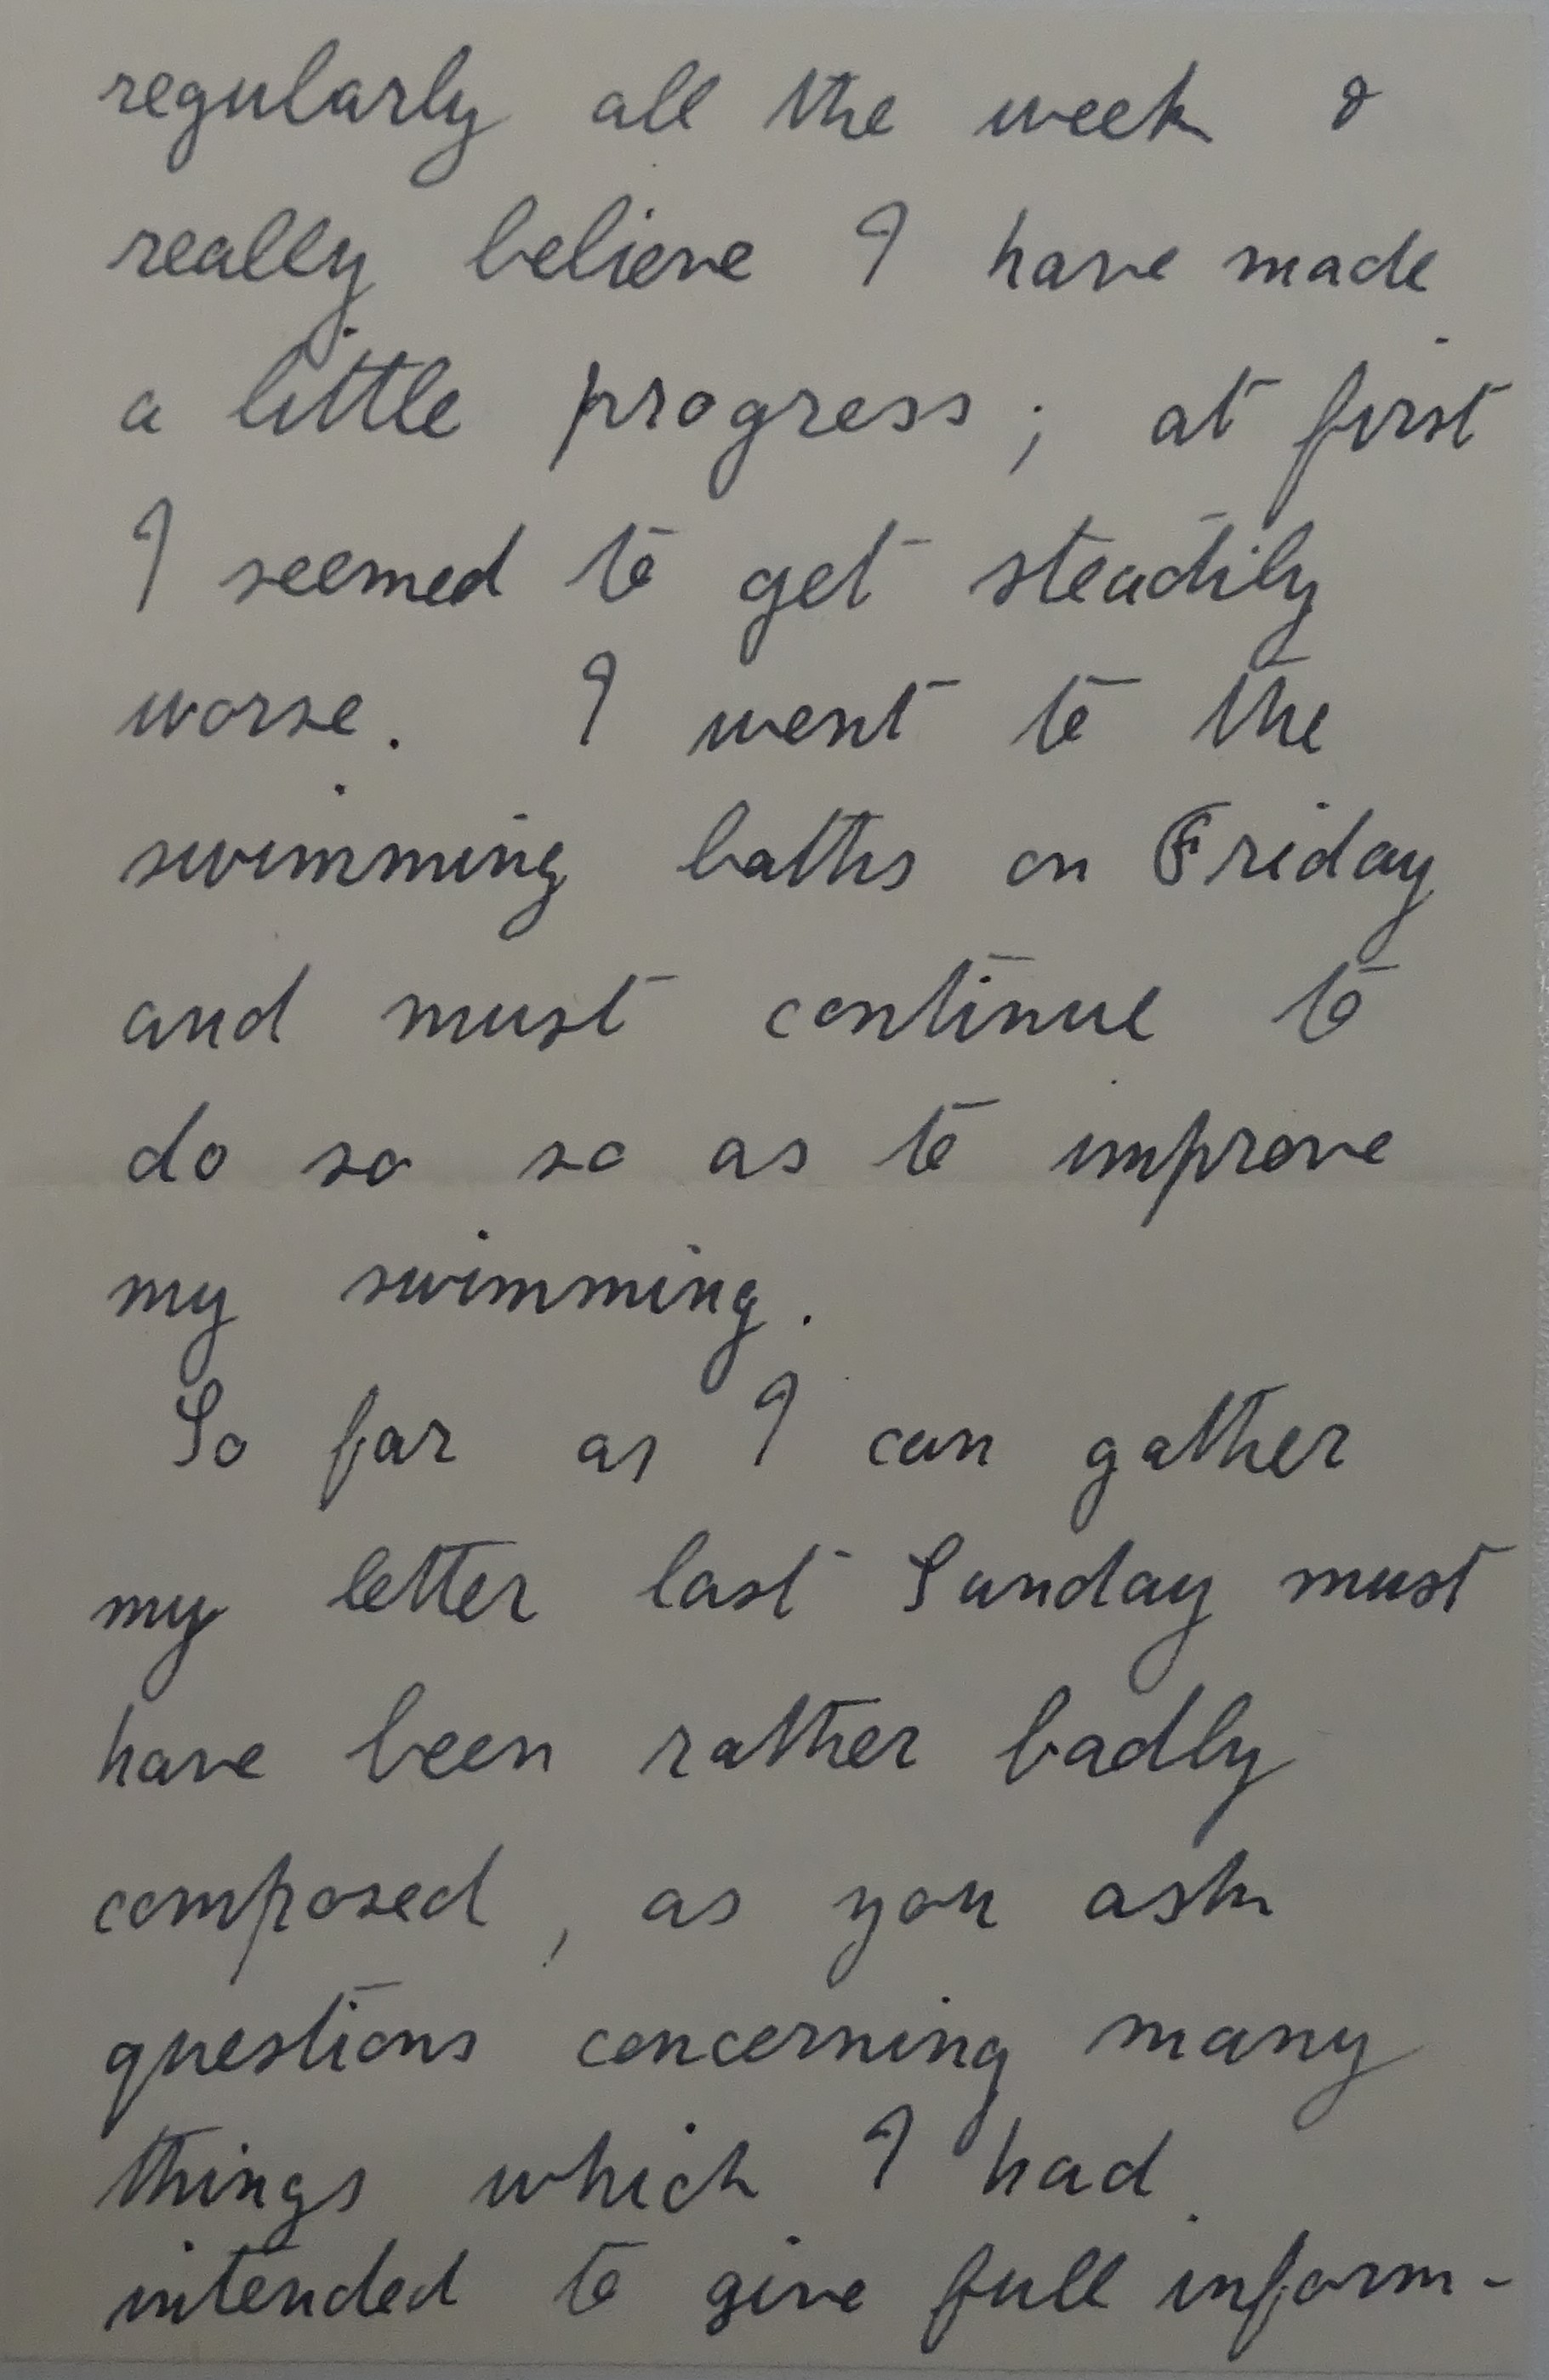 regularly all the week &
really believe I have made
a little progress; at first
I seemed to get steadily
worse. I went to the
swimming baths on Friday
and must continue to
do so so as to improve
my swimming.
So far as I can gather
my letter last Sunday must
have been rather badly
composed, as you ask
questions concerning many
things which I had
intended to give full inform-